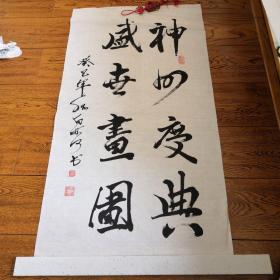 神州慶典
盛世畫圖
癸巳年
书